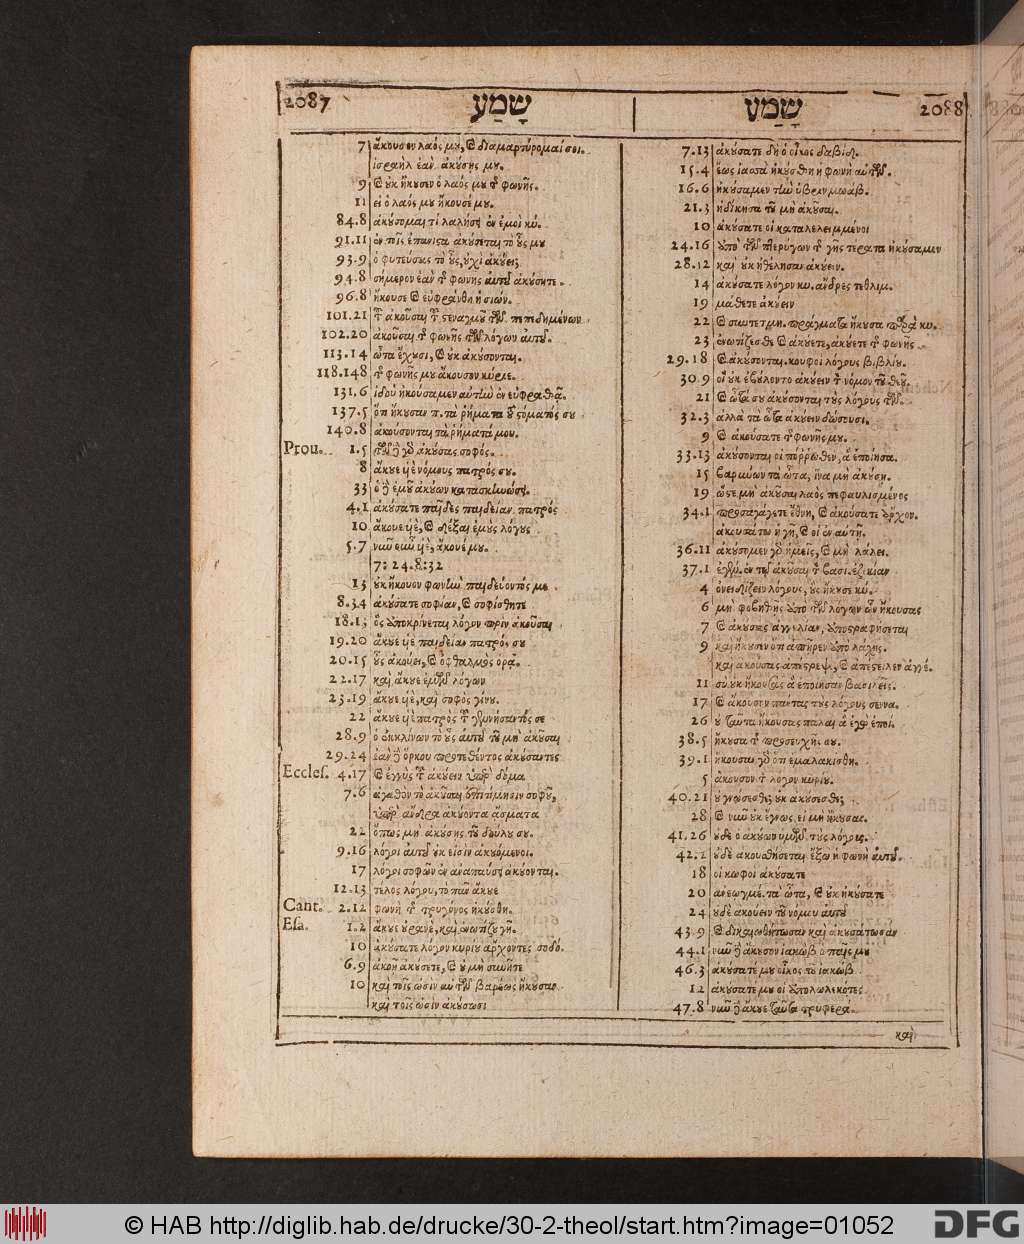 2087 שָׁמַע
7 ἄκουσον λαός μȣ, & διαμαρτύρομαί σοι.
ἰσραὴλ ἐὰν ἀκȣ́σῃς μȣ.
9 & ȣ̓κ ἤκȣσεν ὁ λαός μȣ τ φωνῆς.
11 εἰ ὁ λαός μȣ ἤκουσέ μȣ.
84.8 ἀκȣ́σομαι τί λαλήσει ἐν ἐμοὶ κύ.
91.11 ἐν τοῖς ἀκȣ́σεται τὸ ȣ̓͂ς μȣ
93.9 ὁ φυτεύσας τὸ ȣ̓͂ς, ȣ̓χὶ ἀκȣ́ει;
94.8 σήμερον ἐὰν τ φωνῆς αὐτȣ͂ ἀκȣ́σητε.
96.8 ἤκουσε & εὐφράνθη ἡ σιών.
101.21 τ ἀκοῦσαι τ στεναγμȣ͂ τῶν πεπεδημένων
102.20 ἀκοῦσαι τ φωνῆς τῶν λόγων αὐτȣ͂.
113.14 ὦτα ἔχȣσι, & ȣ̓κ ἀκȣ́σονται.
118.148 τ φωνῆς μȣ ἄκουσον κύριε.
131.6 ἰδοὺ ἠκούσαμεν αὐτὴν ἐν εὐφραθᾷ.
137.5 ὅτι ἤκȣσαν π. τὰ ῥήματα τ στόματός σȣ
140.8 ἀκούσονται τὰ ῥήματά μου.
Prou. 1.5 τῶν δὲ γὰρ ἀκȣ́σας σοφός.
8 ἄκȣε υἱὲ νόμους πατρός σȣ.
33 ὁ δὲ ἐμȣ͂ ἀκȣ́ων κατασκηνώσει.
4.1 ἀκȣ́σατε παῖδες παιδείαν πατρός
10 ἄκουε υἱὲ, & δέξαι ἐμȣ̀ς λόγȣς
5.7 νῦν ȣ̓͂ν υἱὲ, ἄκουέ μȣ.
7: 24.8:32
13 ȣ̓κ ἤκουον φωνὴν παιδεύοντός με
8.34 ἀκȣ́σατε σοφίαν, & σοφίσθητε
18.13 ὃς ἀποκρίνεται λόγον πρὶν ἀκοῦσαι
19.20 ἄκȣε υἱὲ παιδείαν πατρός σȣ
20.15 ȣ̓͂ς ἀκούει, & ὀφθαλμὸς ὁρᾷ.
22.17 καὶ ἄκȣε ἐμῶν λόγων
23.19 ἄκȣε υἱὲ, καὶ σοφὸς γίνȣ.
22 ἄκȣε υἱὲ πατρὸς τ γεννήσαντός σε
28.9 ὁ ἐκκλίνων τὸ ȣ̓͂ς αὐτȣ͂ τȣ͂ μὴ ἀκȣ͂σαι
29.24 ἐὰν δὲ ὅρκου προτεθέντος ἀκȣ́σαντες
Eccles. 4.17 & ἐγγὺς τ ἀκȣ́ειν ὑπὲρ δόμα
7.6 ἀγαθὸν τὸ ἀκȣ͂σαι ἐπιτίμησιν σοφȣ͂,
ὑπὲρ ἄνδρα ἀκȣ́οντα ᾄσματα
22 ὅπως μὴ ἀκȣ́σῃς τȣ͂ δούλȣ σȣ.
9.16 λόγοι αὐτȣ͂ ȣ̓κ εἰσὶν ἀκȣόμενοι.
17 λόγοι σοφῶν ἐν ἀναπαύσει ἀκȣ́ονται.
12.13 τέλος λόγου, τὸ πᾶν ἄκȣε
Cant. 2.12 φωνὴ τ τρυγόνος ἠκȣ́σθη.
Esa. 1.2 ἄκȣε ȣ̓ρανὲ, καὶ ἐνωτίζȣ γῆ.
10 ἀκȣ́σατε λόγον κυρίȣ ἄρχοντες σοδό.
6.9 ἀκοῇ ἀκȣ́σετε, & ȣ̓ μὴ συνῆτε
10 καὶ τοῖς ὠσὶν αὐτῶν βαρέως ἤκȣσαν
καὶ τοῖς ὠσὶν ἀκȣ́σωσι
שָׁמַע 2088
7.13 ἀκȣ́σατε δὴ ὁ οἶκος δαβίδ.
15.4 ἕως ἰασσὰ ἠκȣ́σθη ἡ φωνὴ αὐτῶν.
16.6 ἠκȣ́σαμεν τὴν ὕβριν μωάβ.
21.3 ἠδίκησα τȣ͂ μὴ ἀκȣ͂σαι.
10 ἀκȣ́σατε οἱ καταλελειμμένοι
24.16 ἀπὸ τῶν πτερύγων τ γῆς τέρατα ἠκȣ́σαμεν
28.12 καὶ ȣ̓κ ἠθέλησαν ἀκȣ́ειν.
14 ἀκȣ́σατε λόγον κυ. ἄνδρες τεθλιμ.
19 μάθετε ἀκȣ́ειν
22 & συντετμη. πράγματα ἤκȣσα παρὰ κυ.
23 ἐνωτίζεσθε & ἀκȣ́ετε, ἀκȣ́ετε τ φωνῆς
29.18 & ἀκȣ́σονται κουφοὶ λόγȣς βιβλίȣ.
30 9 οἳ ȣ̓κ ἐβȣ́λοντο ἀκȣ́ειν τ νόμον τȣ͂ θεȣ͂.
21 & ὦτά σȣ ἀκȣ́σονται τȣ̀ς λόγȣς τῶν.
32.3 ἀλλὰ τὰ ὦτα ἀκȣ́ειν δώσουσι.
9 & ἀκούσατε τ φωνῆς μȣ.
33.13 ἀκȣ́σονται οἱ πόῤῥωθεν, ἃ ἐποίησα.
15 βαρύνων τὰ ὦτα, ἵνα μὴ ἀκȣ́σῃ.
19 ὥστε μὴ ἀκȣ͂σαι λαὸς πεφαυλισμένος
34.1 προσαγάγετε ἔθνη, & ἀκούσατε ἄρχον.
ἀκȣσάτω ἡ γῆ, & οἱ ἐν αὐτῇ.
36.11 ἀκȣ́ομεν γὰρ ἡμεῖς, & μὴ λάλει.
37.1 ἐγέν. ἐν τῷ ἀκȣ͂σαι τ βασι. ἐζεκίαν
4 ὀνειδίζειν λόγους, ȣ̔̀ς ἤκȣσε κύ.
6 μὴ φοβηθῇς ἀπὸ τῶν λόγων ὧν ἤκουσας
7 & ἀκȣ́σας ἀγγελίαν, ἀποστραφήσεται
9 καὶ ἤκȣσεν ὅτι ἀπῆρεν ἀπὸ λάχις.
καὶ ἀκούσας ἀπέστρεψε, & ἀπέστειλεν ἀγγέ.
11 σὺ ȣ̓κ ἤκουσας ἃ ἐποίησαν βασιλεῖς.
17 & ἄκουσον πάντας τȣ̀ς λόγους σεννα.
26 ȣ̓ ταῦτα ἤκουσας πάλαι ἃ ἐγὼ ἐποί.
38.5 ἤκȣσα τ προσευχῆς σȣ.
39.1 ἤκουσε γὰρ ὅτι ἐμαλακίσθη.
5 ἄκουσον τ λόγον κυρίȣ.
40.21 ȣ̓ γνώσεσθε; ȣ̓κ ἀκȣ́σεσθε;
28 & νῦν ȣ̓κ ἔγνως, εἰ μὴ ἤκȣσας.
41.26 ȣ̓δὲ ὁ ἀκȣ́ων ὑμῶν τȣ̀ς λόγȣς.
42.2 ȣ̓δὲ ἀκουσθήσεται ἔξω ἡ φωνὴ αὐτȣ͂.
18 οἱ κωφοὶ ἀκȣ́σατε
20 ἀνεῳγμέ. τὰ ὦτα, & ȣ̓κ ἠκȣ́σατε
24 ȣ̓δὲ ἀκούειν τȣ͂ νόμȣ αὐτȣ͂
43.9 & δικαιωθήτωσαν καὶ ἀκȣσάτωσαν
44.1 νῦν δὲ ἄκȣσον ἰακὼβ ὁ παῖς μȣ
46.3 ἀκȣ́σατέ μȣ οἶκος τȣ͂ ἰακὼβ
12 ἀκȣ́σατέ μȣ οἱ ἀπολωλεκότες
47.8 νῦν δὲ ἄκȣε ταῦτα τρυφερά.
καὶ
© HAB http://diglib.hab.de/drucke/30-2-theol/start.htm?image=01052
DFG